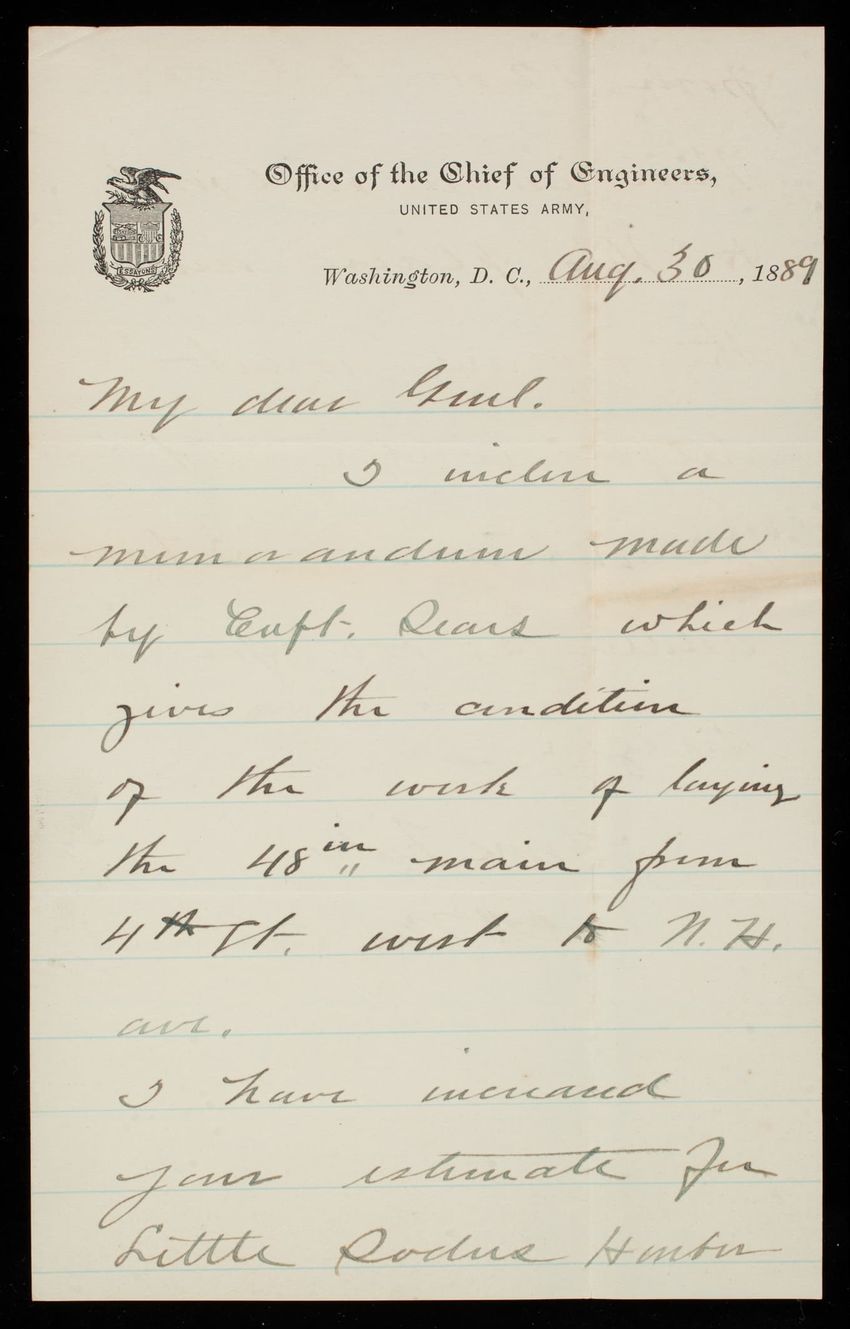 Office of the Chief of Engineers,
UNITED STATES ARMY,
ESSAYONS
Washington, D. C., Aug. 30, 1889
My dear Genl.
I inclose a
memorandum made
by Capt. Sears which
gives the condition
of the work of laying
the 48 in main from
4th St. west to N. H.
ave.
I have increased
your estimate for
Little Sodus Harbor